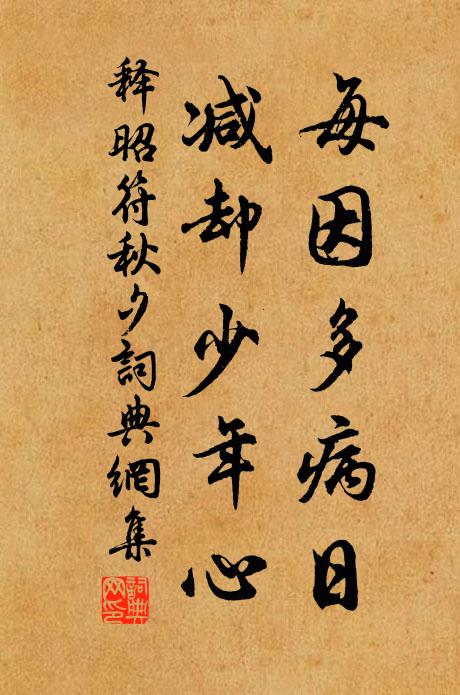 每因多病日
减却少年心
释昭符秋夕詞典網集
詞典網印